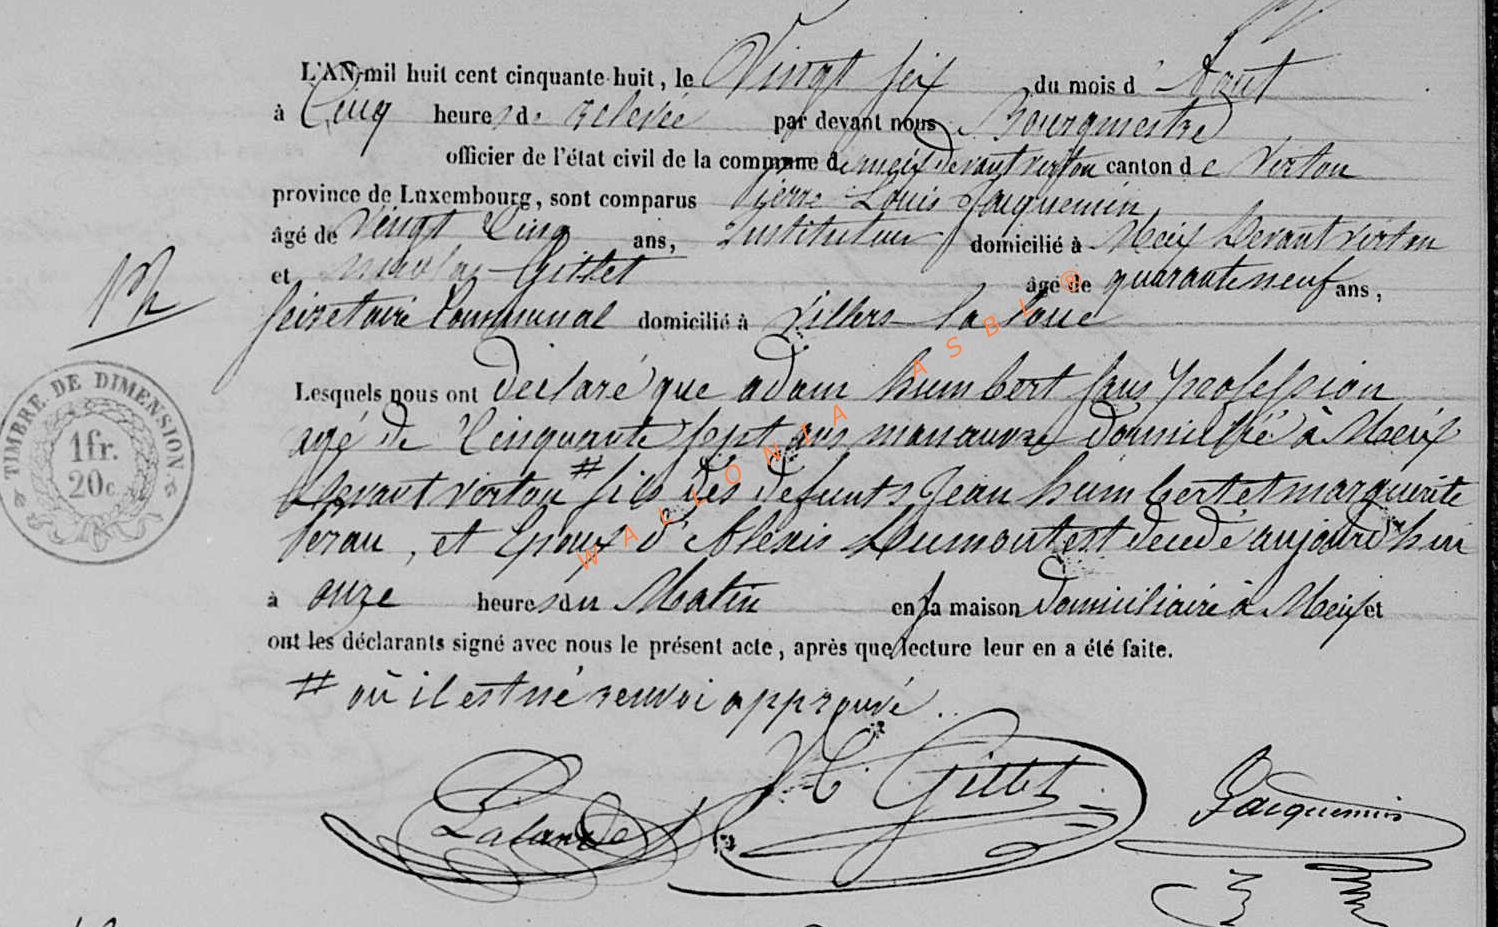 L'AN mil huit cent cinquante-huit, le Vingt six du mois d' Aout
à Cinq heures de relevée par devant nous Bourgmestre
officier de l'état civil de la commune de meix devant virton canton de Virton
province de Luxembourg, sont comparus Pierre Louis Jacquemin
âgé de Vingt Cinq ans, Instituteur domicilié à Meix Devant virton
et nicolas Gillet âgé de quarante neuf ans,
Secretaire Communal domicilié à Villers-la loue
Lesquels nous ont declaré que adam humbert sans profession
agé de Cinquante sept ans manœuvre domicilié à Meix
devant virton # fils des defunts Jean humbert et marguerite
, et Epoux d'Alexis Dumont est decedé aujourd'hui
à onze heures du Matin en sa maison domiciliaire à Meix et
ont les déclarants signé avec nous le présent acte, après que lecture leur en a été faite.
# où il est né renvoi approuvé.
Lalande N C Gillet Jacquemin
TIMBRE DE DIMENSION
1fr.
20c
WALLONIA ASBL ®